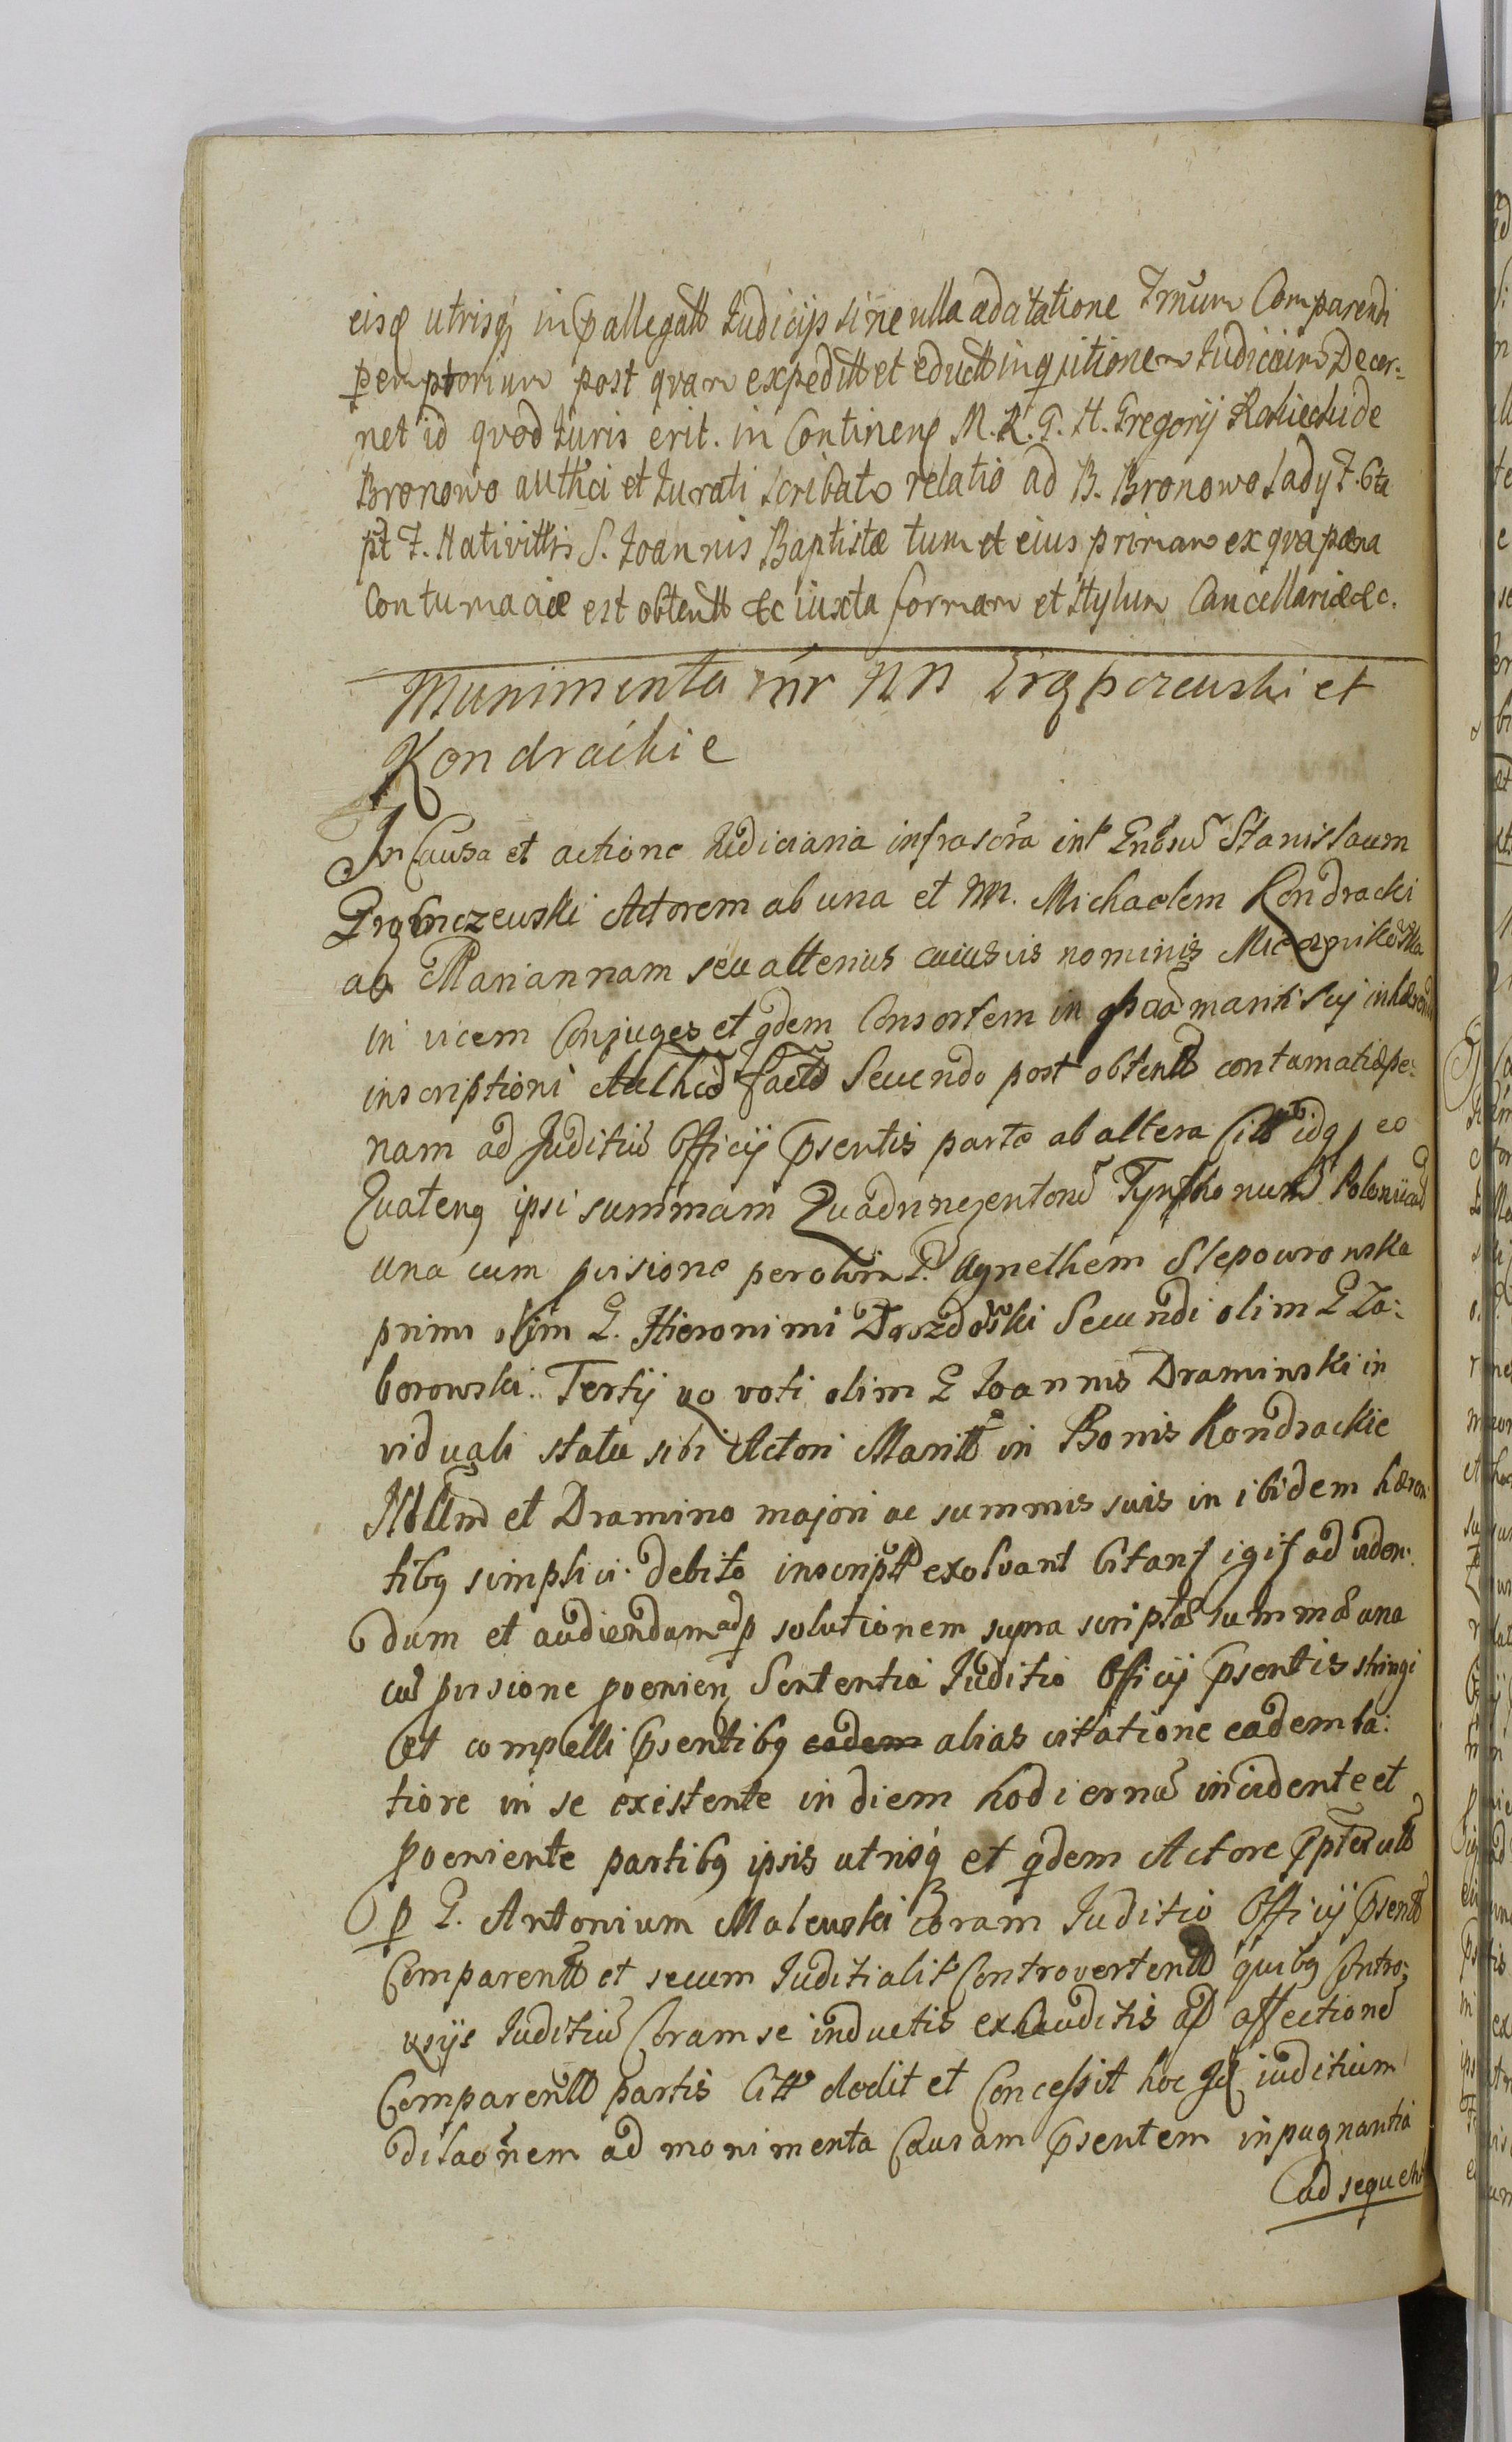 eisq utrisq in pallegatt Judicijs sine ulla adcitatione Trnum Comparendi
peremptorium post qvam expeditt et eductt inqsitionem Judicium Decer=
net id qvod Juris erit. in Continen M. R. G. H. Gregorij de
Bronowo authci et Jurati scribato relatio ad B. Bronowo Lady F. 6ta
pt F. Nativittis S. Joannis Baptistæ tum et eius primam ex qva pæna
Contumaciæ est obtentt &c iuxta formam et stylum Cancellariæ &c.
Munimenta inr NN et
Kondrackie
In Causa et actione Judiciaria infrascra int Gnosu Stanislaum
Actorem ab una et M. Michaelem Kondracki
ac Mariannam seu alterius cuiusvis nominis
in vicem Conjuges et qdem Consortem in mariti sui
inscriptioni Authco facto Secundo post obtentt contumatiæ pe=
nam ad Juditiu Officij psentis parte ab altera Citt idq eo
Quatenq ipsi summam Quadringentoru Tynfhonum Polon
una cum provisione per olim G. Agnethem Slepowronska
primi olim G. Hieronimi Drozdoski Secundi olim G Za=
borowski. Tertij vo voti olim G Joannis Draminski in
viduali statu sibi Actori Maritt in Bonis Kondrackie
et Dramino majori ac summis suis in ibidem hæren=
tibq simplici debito inscriptt exolvant Citant igit ad viden=
dum et audiendum adp solutionem supra scriptæ summæ una
cu provisione poenien Sententia Juditio Officij psentis stringi
et compelli psentibq eadem alias citatione eadem la=
tiore in se existente in diem hodiernu incidente et
poeniente partibq ipsis utrisq et qdem Actore
p G. Antonium Maleuski coram Juditio Officij psentt
Comparentt et secum Juditialit Controvertentt quibq Contro=
vsijs Juditiu Coram se inductis exauditis ad affectionem
Comparentt partis Citt dedit et Concessit hoc idq iuditium
dilaonem ad monimenta Causam psentem inpugnantia
ad sequen